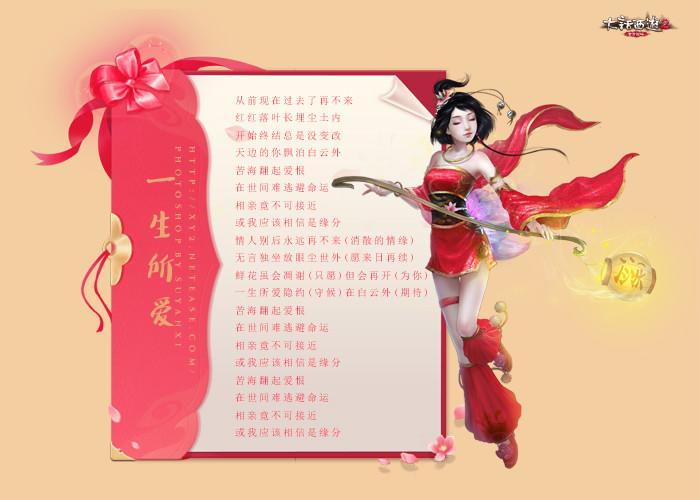 大话西游2
一生所爱
HTTP://XY2.NETEASE.COM/
PHOTOSHOP BY SUYANXI
从前现在过去了再不来
红红落叶长埋尘土内
开始终结总是没变改
天边的你飘泊白云外
苦海翻起爱恨
在世间难逃避命运
相亲竟不可接近
或我应该相信是缘分
情人别后永远再不来(消散的情缘)
无言独坐放眼尘世外(愿来日再续)
鲜花虽会凋谢(只愿)但会再开(为你)
一生所爱隐约(守候)在白云外(期待)
苦海翻起爱恨
在世间难逃避命运
相亲竟不可接近
或我应该相信是缘分
苦海翻起爱恨
在世间难逃避命运
相亲竟不可接近
或我应该相信是缘分